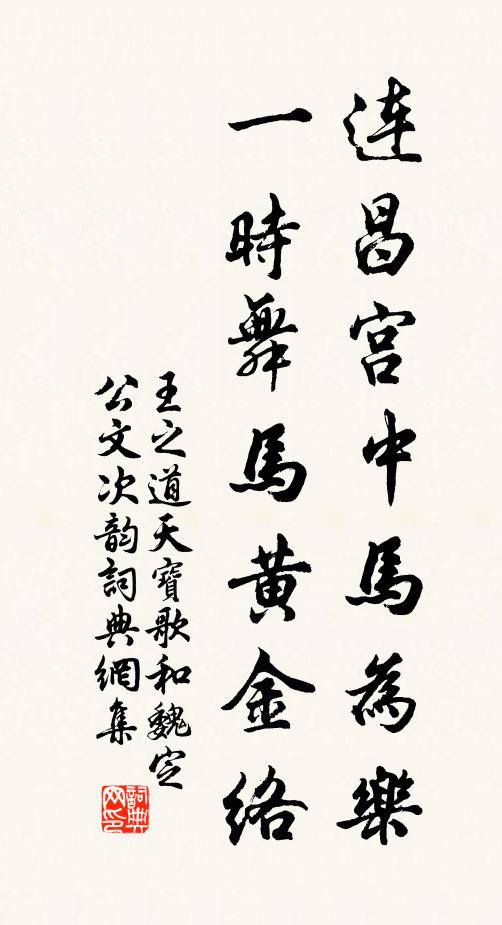 連昌宫中馬為樂
一時舞馬黄金絡
王之道天寶歌和魏定
公文次韵詞典網集
詞典
网印